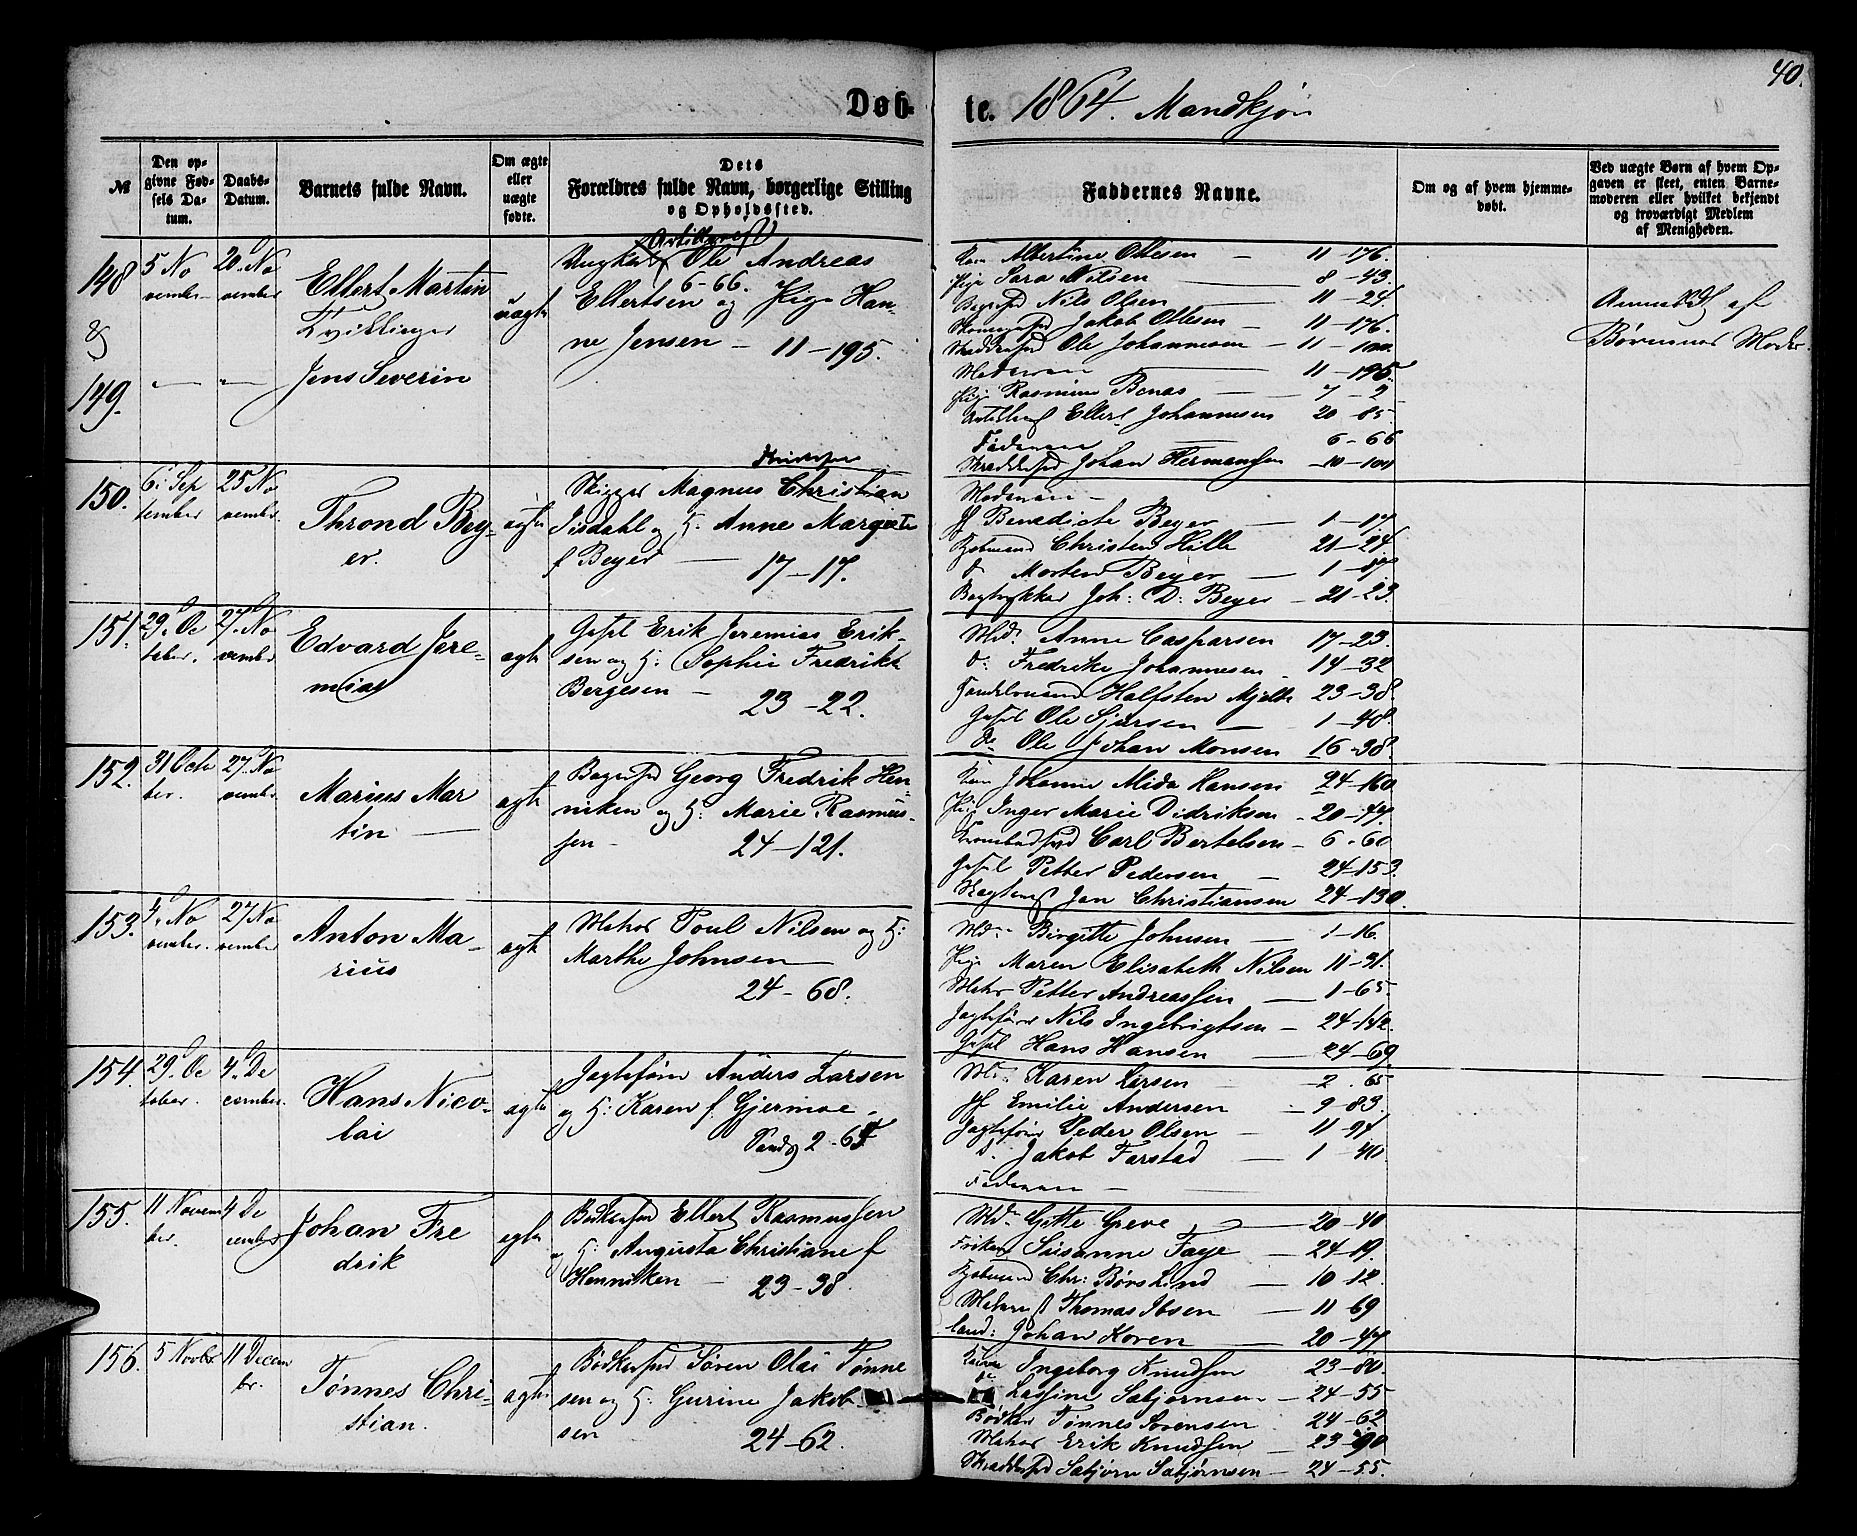 40.
Døb-
te. 1864. Mandkjøn
№
Den op-
givne Fød-
sels Da-
tum.
Daabs-
Datum.
Barnets fulde Navn.
Om ægte
eller
uægte
fødte.
Dets
Forældres fulde Navn, borgerlige Stilling
og Opholdssted.
Faddernes Navne.
Om og af hvem hjemme-
døbt.
Ved uægte Børn af hvem Op-
gaven er skeet, enten Barne-
moderen eller hvilket bekjendt
og troværdigt Medlem
af Menigheden.
148
5 No
vember
20. No
vember
Ellert Martin
Tvillinger
&
149.
Jens Severin
uægte
Ungkarl Ole Andreas
6-66.
Ellertsen og Pige Han-
ne Jensen – 11–195.
Kone Albertine Ottesen – 11–176.
Pige Sara Nilsen 8–43.
Nils Olsen 11–24.
Jakob Ottesen – 11–176.
Ole Johannesen – 11–
Moderen 11–195.
Pige Rasmine Benas 7–2
Ellert Johannesen 20–85
Faderen 6–66
Johan Hermansen –10–100
Anmeldt af
Børnenes Moder
150.
6. Sep
tember
25 No
vember.
Thrond Bey-
er.
ægte
Skipper Magnus Christian
Jisdahl og H: Anne Margrete
f Beyer – 17–17.
Moderen –
Jf Benedicte Beyer – 1–17.
Kjøbmand Christen Hille 21–24.
do Morten Beyer – 1–17.
Bogtrykker Joh: D: Beyer – 21–23.
151.
29. Oc
tober.
27. No
vember
Edvard Jere-
mias
ægte
Gesel Erik Jeremias Erik-
sen og H: Sophie Fredrikke
Bergesen – 23–22.
Mad. Anne Casparsen 17–23.
do: Fredrike Johannesen 14–32
Handelsmand Halfsten Mjelde 23–38.
Gesel Ole Sjursen – 1–48.
do Ole Johan Monsen 16–38.
152.
31 Octo
ber.
27. No
vember
Marius Mar
tin –
ægte
Georg Fredrik Hen-
niken og H: Marie Rasmus-
sen – 24–121.
Kone Johanne Alida Hansen 24–160
Pige Inger Marie Didriksen – 20–77.
Carl Bertelsen – 6–60
Gesel Petter Pedersen – 24–153.
Jan Christiansen 24–130.
153.
4. No
vember.
27 No
vember
Anton Ma-
rius
ægte
Matros Poul Nilsen og H:
Marthe Johnsen
24–68.
Md. Birgitte Johnsen – 1–16.
Pige Maren Elisabeth Nilsen 11–31.
Matros Petter Andreassen – 1–65.
Jagtefører Nils Ingebrigtsen – 24–142.
Gesel Hans Hansen – 24–69.
154.
29. Oc
tober.
4. De
cember.
Hans Nico-
lai
ægte
Jagtefører Anders Larsen
og H: Karen f. Gjermoe.
2–65
Md. Karen Larsen – 2–65
Jf Emilie Andersen – 9–83.
Jagtefører Peder Olsen – 11–94
do. Jakob Farstad – 1–40
Faderen –
155.
11 Novem
ber.
4 De
cember
Johan Fre
drik
ægte
Bødkersvd Ellert Rasmussen
og H: Augusta Christiane f
Henniken – 23–38.
Md. Gitte Greve – 20–40
Frøken Susanne Faye – 24–19.
Kjøbmand Chr: Børslind – 10–12.
Thomas Ibsen – 11–69
Cand: Johan Koren – 20–47
156.
5 Novbr
11 Decem
br.
Tønnes Chri-
stian.
ægte
Bødkersvd Søren Olai Tønne
sen og H: Gurine Jakob
sen 24–62.
Ingeborg Knudsen 23–80
do Lassine Sabjørnsen – 24–55
Bødker Tønnes Sørensen 24–62
Matros Erik Knudsen – 23–90
Sabjørn Sabjørnsen – 24–55.